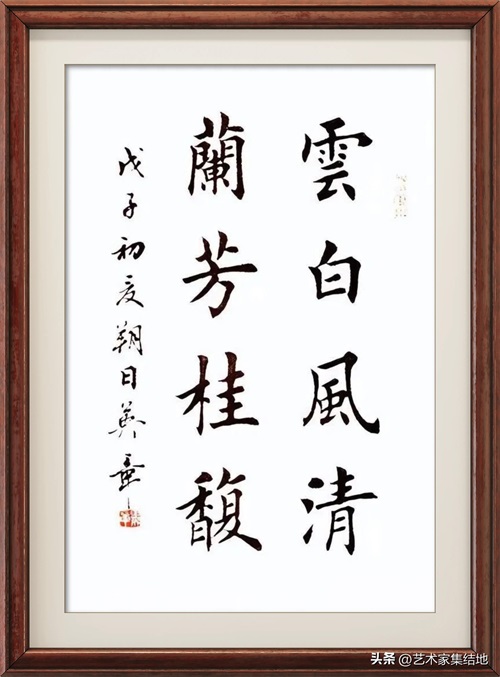 雲白風清
蘭芳桂馥
戊子初夏朔日英章
头条 @艺术家集结地